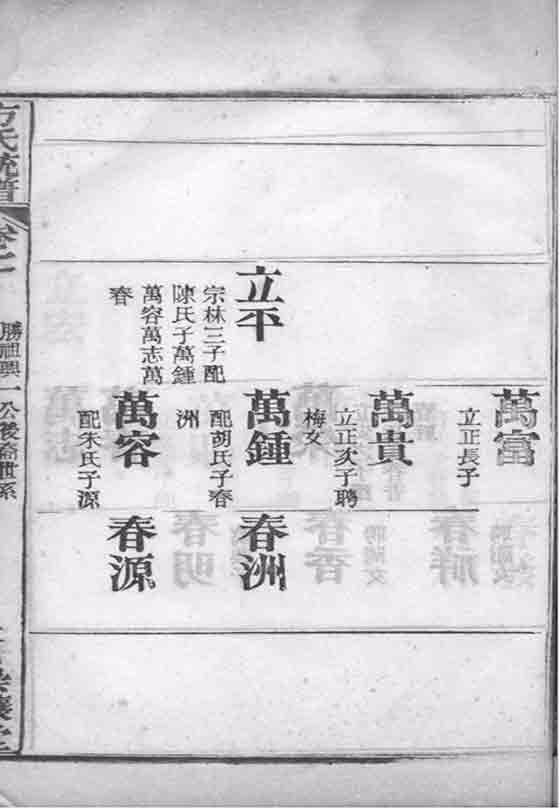 立平
宗林三子配
陳氏子萬鍾
萬容萬志萬
春
萬富
立正長子
萬貴
立正次子聘
梅女
萬鍾
配胡氏子春
洲
萬容
配朱氏子源
春洲
春源
方氏統譜
卷之
勝祖興一公後裔世系